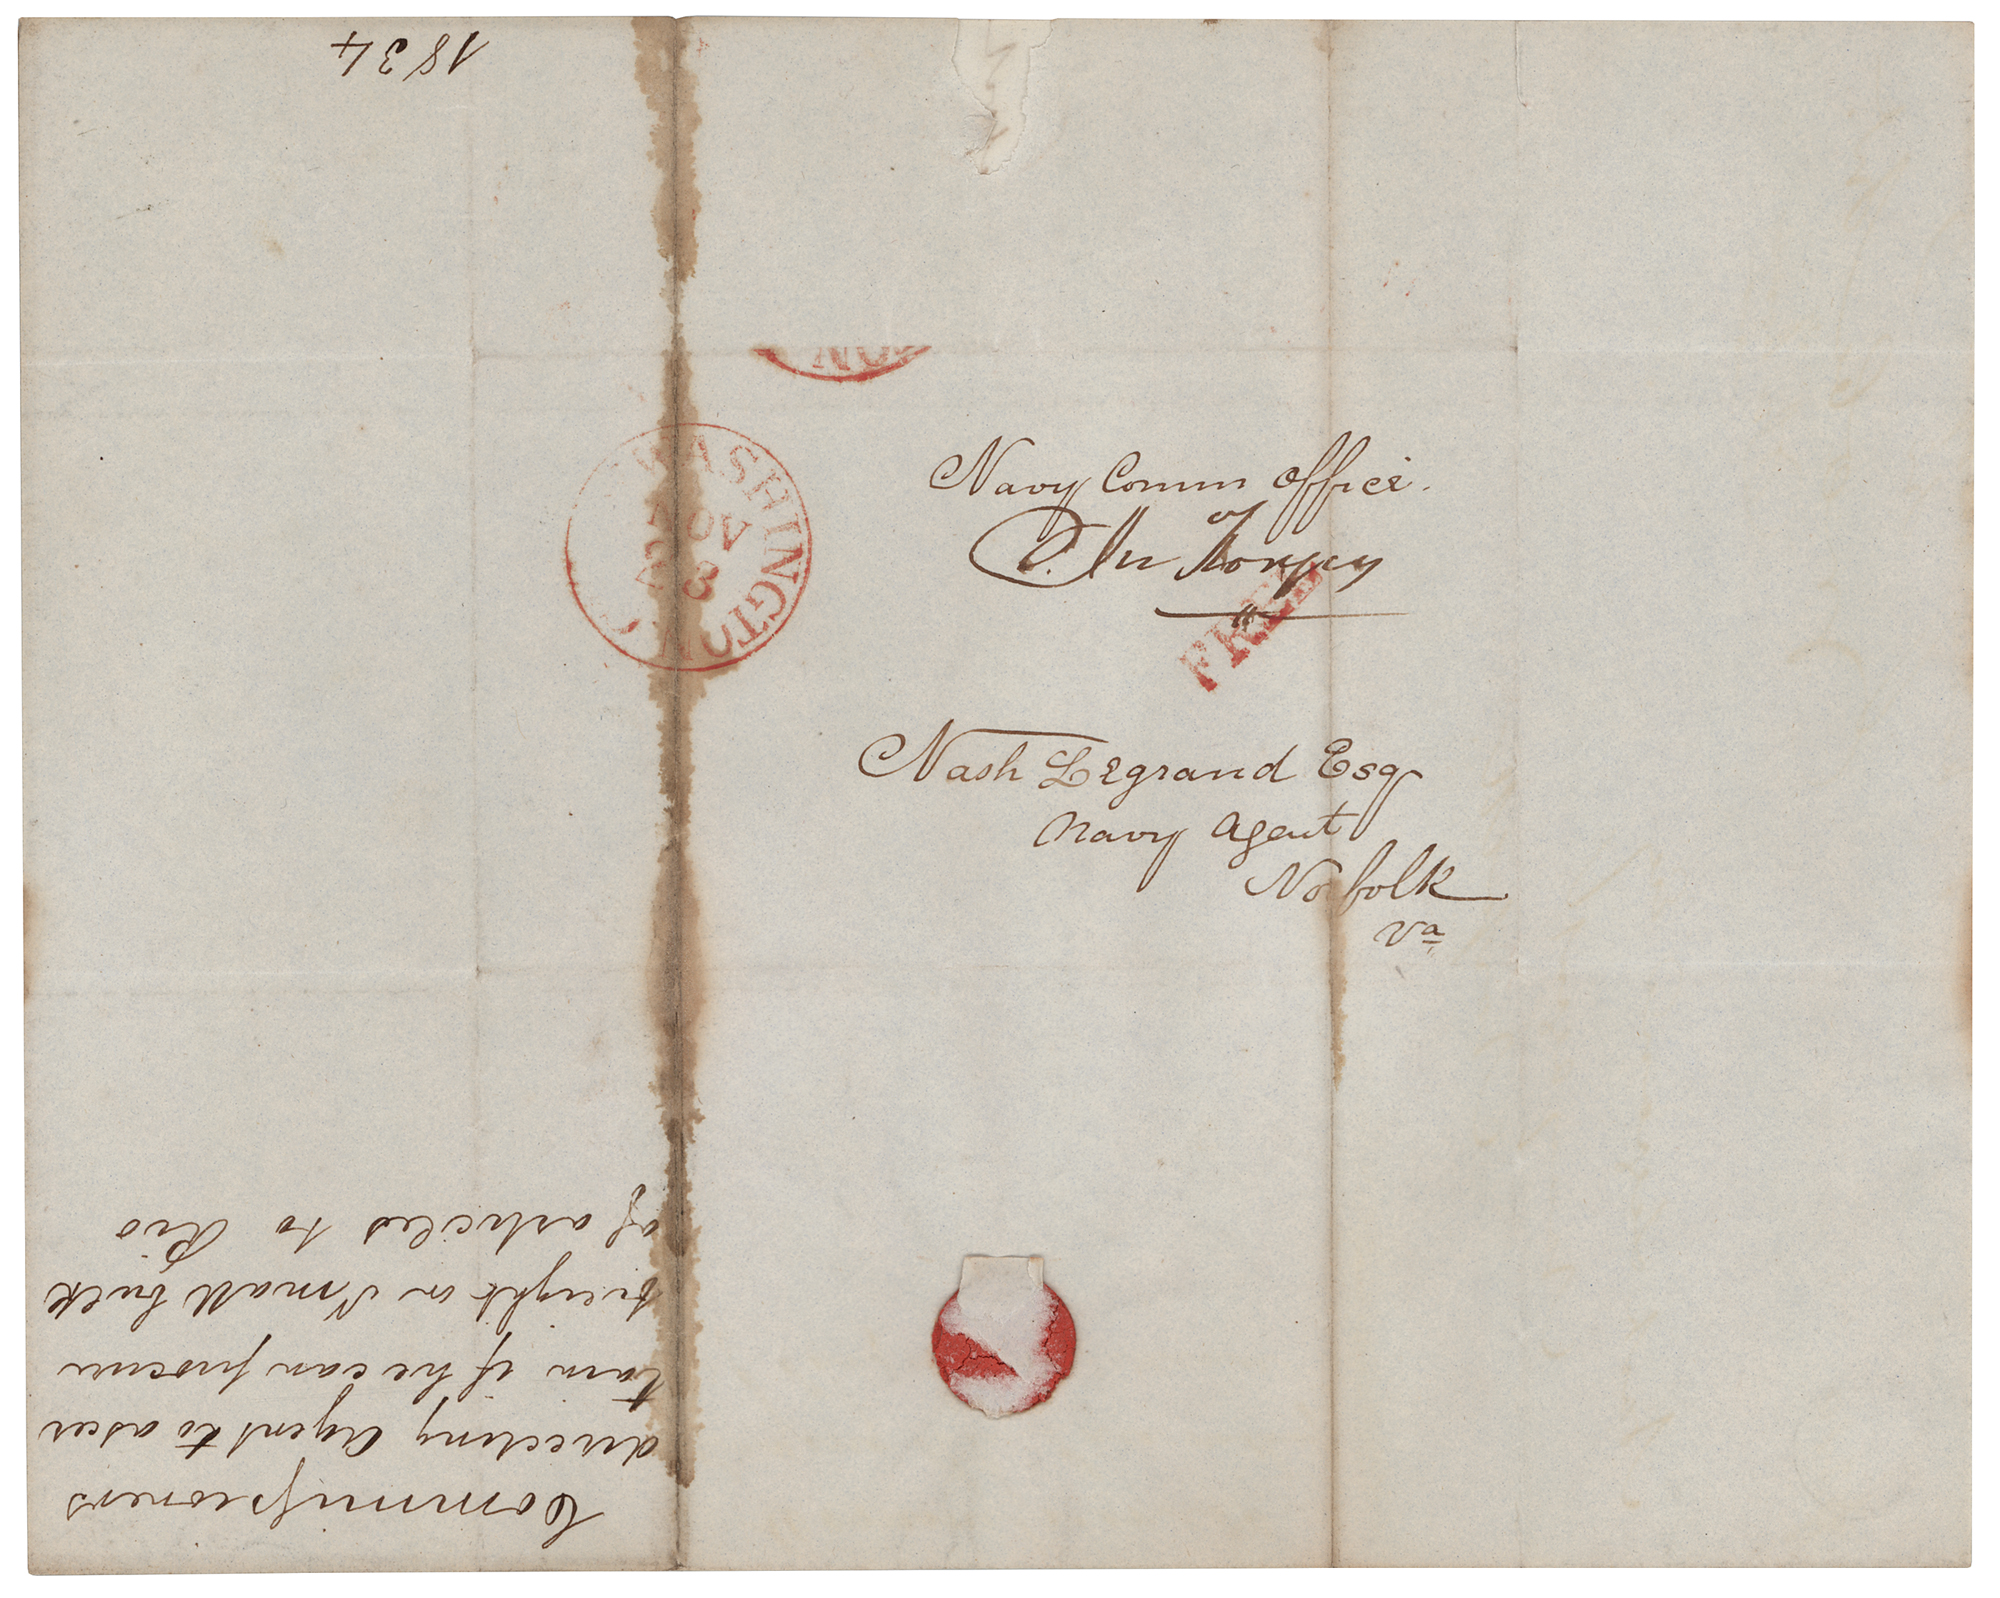 1834
NOV
WASHINGTON
NOV
23
Navy Comm Office.
FREE
Nash Legrand Esq
Navy Agent
Norfolk
Va
Commissioners
directing Agent to ascer
tain if he can procure
freight on Small bulk
of articles to Rio